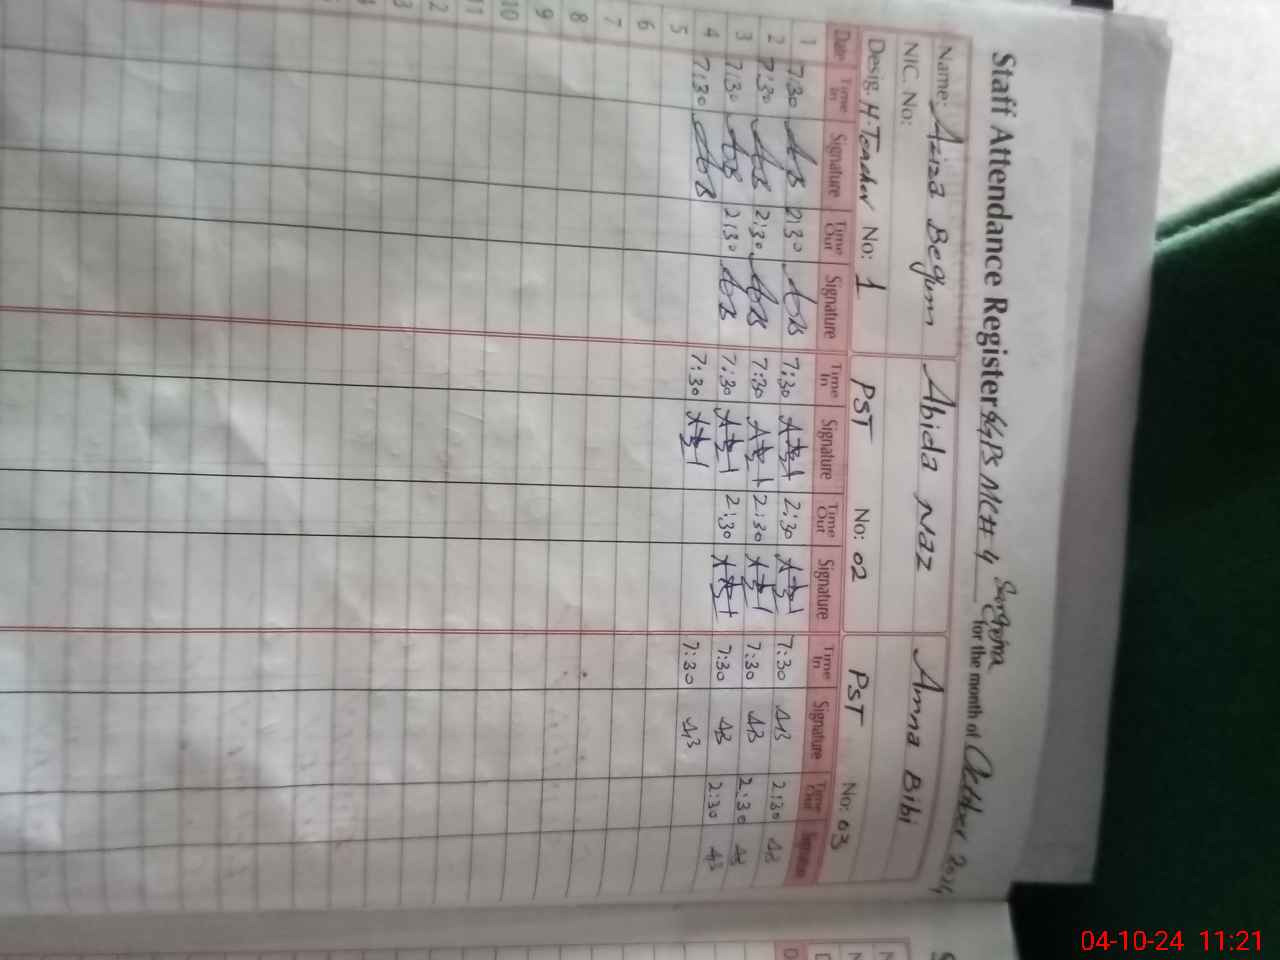 Staff Attendance Register GGPS MCH 4 for the month of October 2024
Name: Aziza Begum Abida Naz Amna Bibi
NIC. No:
Desig. H.Teacher No: 1 PST No: 02 PST No: 03
Date Time In Signature Time Out Signature Time In Signature Time Out Signature Time In Signature Time Out Signature
1 7:30 2:30 7:30 2:30 7:30 AB 2:30 AB
2 7:30 2:30 7:30 2:30 7:30 AB 2:30 AB
3 7:30 2:30 7:30 2:30 7:30 AB 2:30 AB
4 7:30 7:30 7:30 AB
5
6
7
8
9
10
11
12
04-10-24 11:21